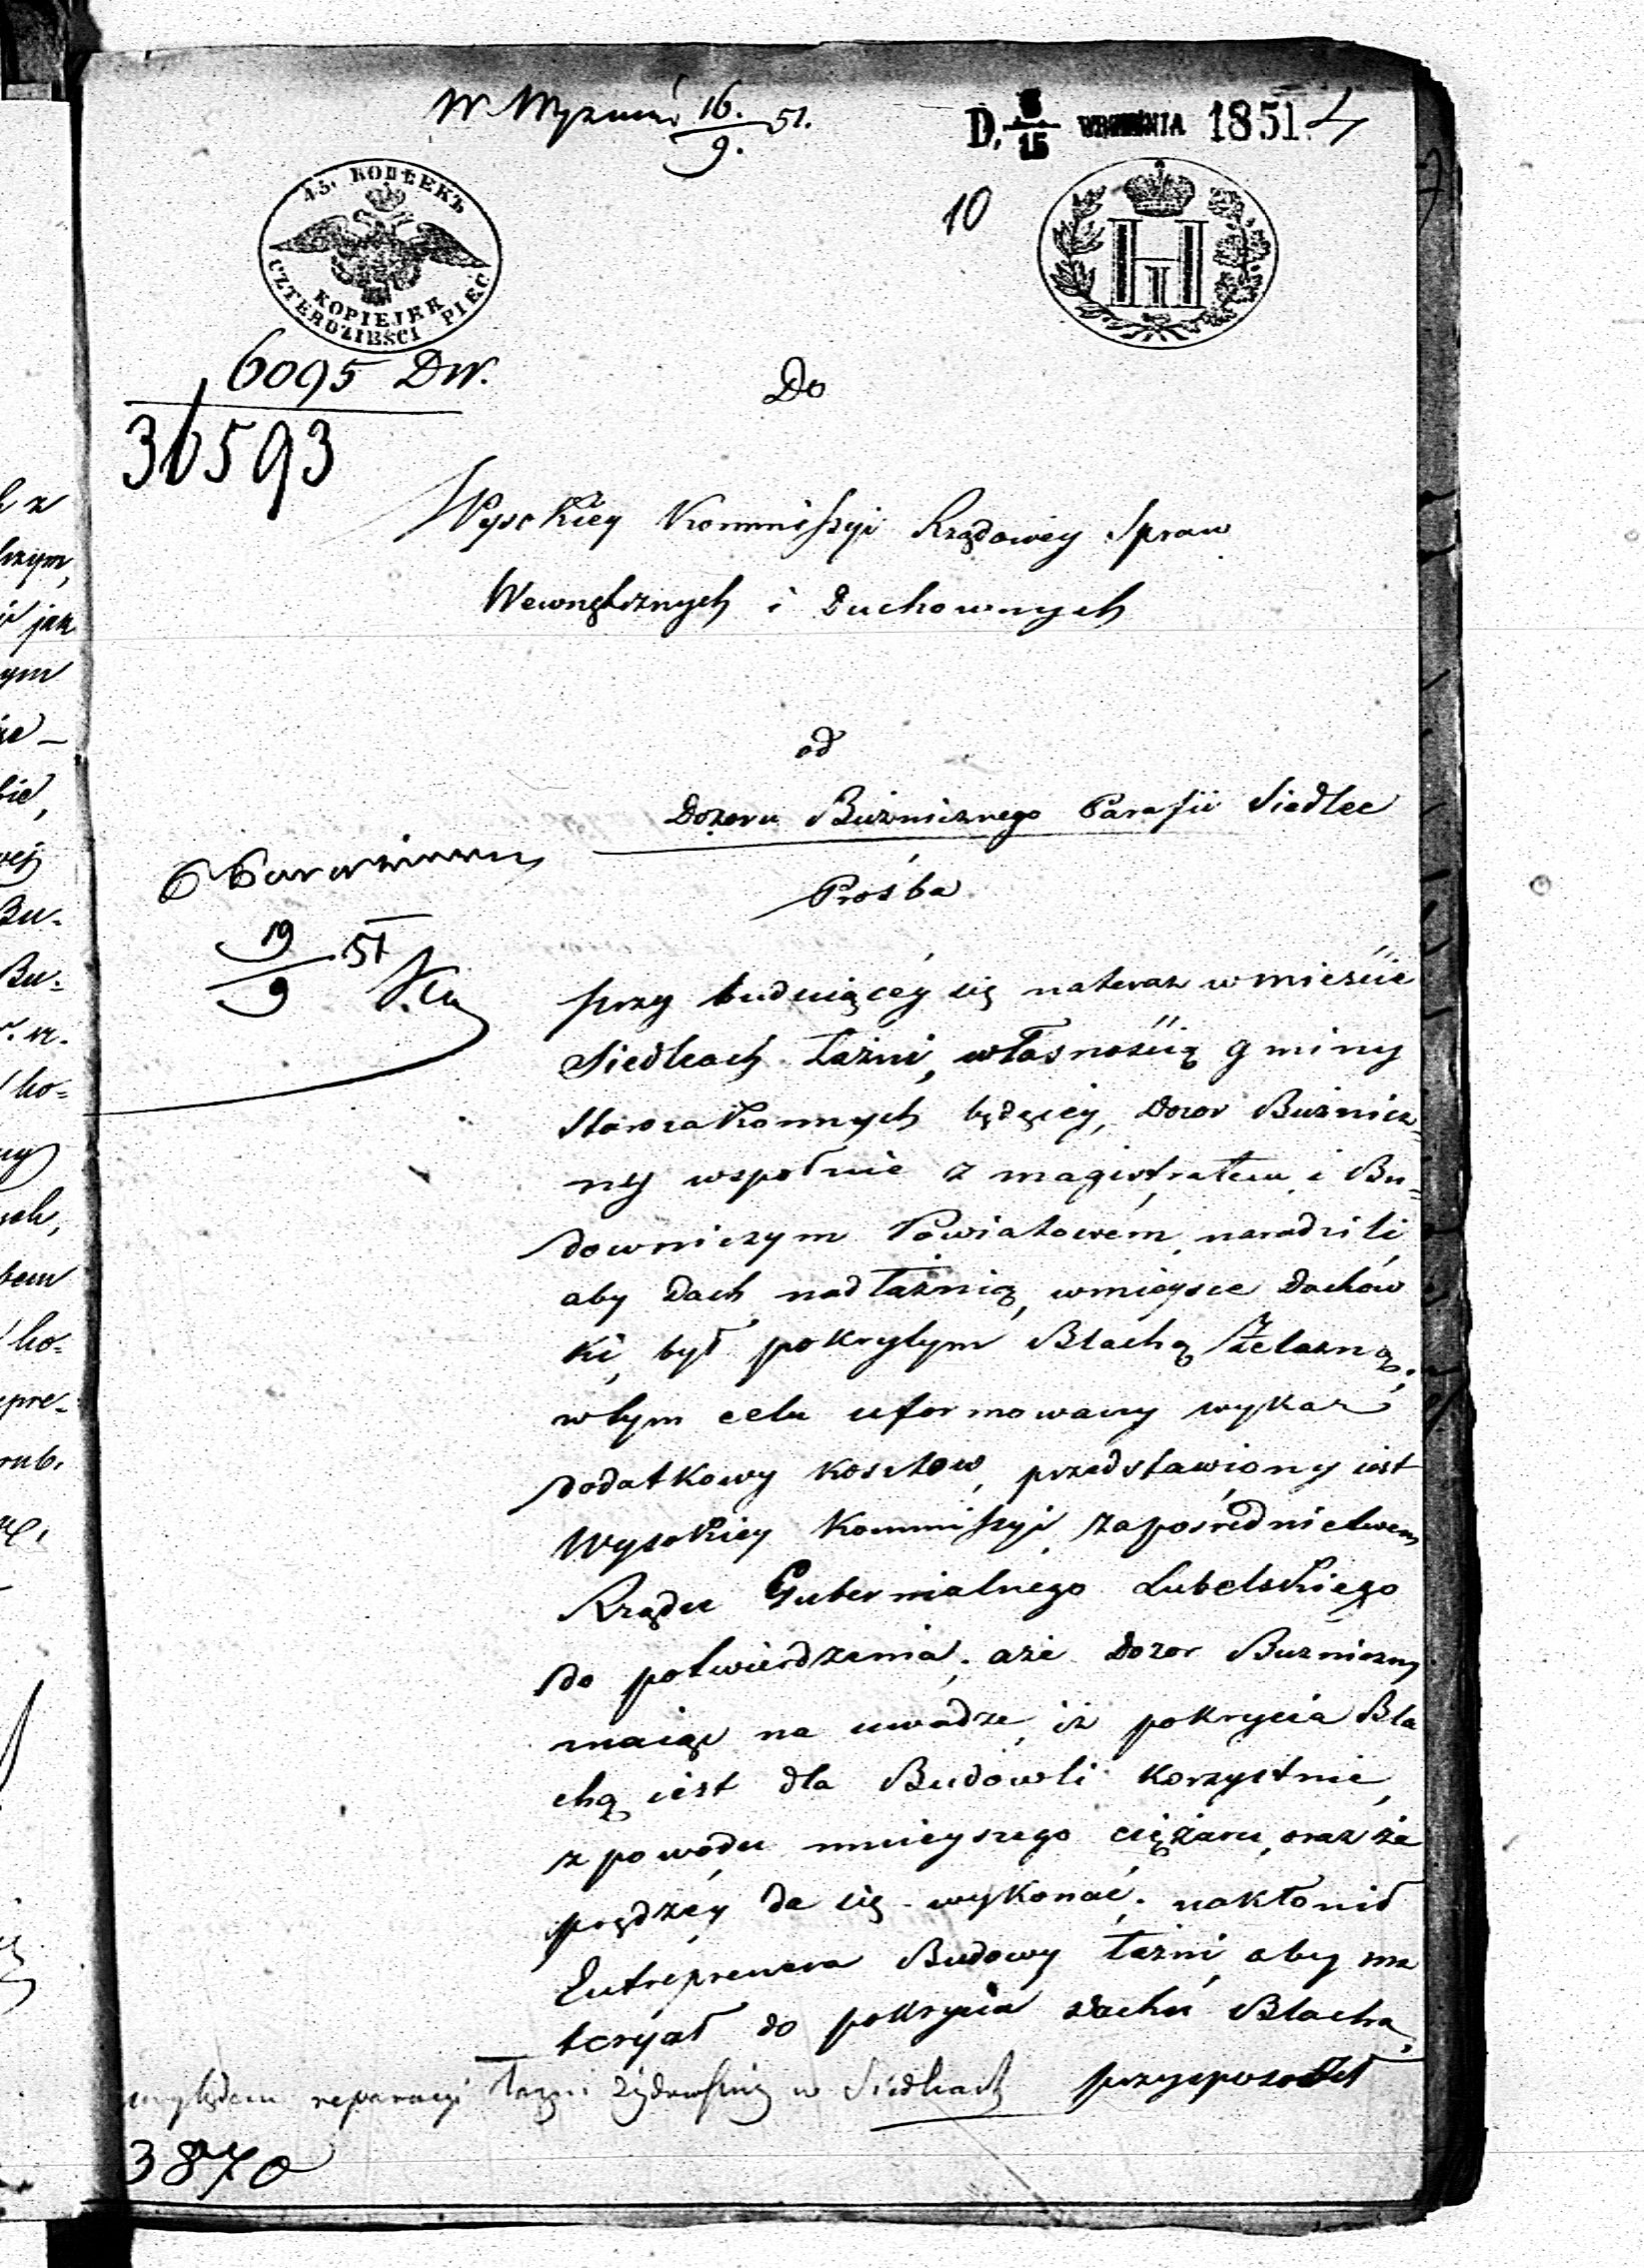 W Wyznań 16./9. 51.
D. 3/15 WRZEŚNIA 1851. 4
10
45. КОПѢЕКЪ
KOPIEJEK
CZTERDZIEŚCI PIĘĆ
H I
6095 DW.
36593
Do
Wysokiey Kommissyi Rządowey Spraw
Wewnętrznych i Duchownych
od
Dozoru Bużnicznego Parafii Siedlec
Prośba
19/9 51
przy buduiącey się nateraz w mieście
Siedlcach Łaźni, własnością gminy
Starozakonnych będącey, Dozor Bużnicz=
ny wspołnie z magistratem i Bu=
downiczym Powiatowem naradzili
aby Dach nad łaźnią, wmieysce Dachów
ki, był pokrytym Blachą Żelazną,
wtym celu uformowany wykaz
dodatkowy kosztow, przedstawiony iest
Wysokiey Kommissyi zapośrednictwem
Rządu Gubernialnego Lubelskiego
do potwierdzenia, aże Dozor Bużniczny
maiąc na uwadze, iż pokrycia Bla
chą iest dla Budowli korzystnie,
z powodu mnieyszego ciężaru, oraz że
prędzéy da się wykonać, nakłonił
Entreprenera Budowy Łaźni, aby ma
teryał do pokrycia dachu Blachą
przysposobił
względem reparacyi Łaźni Żydowskiey w Siedlcach
3870